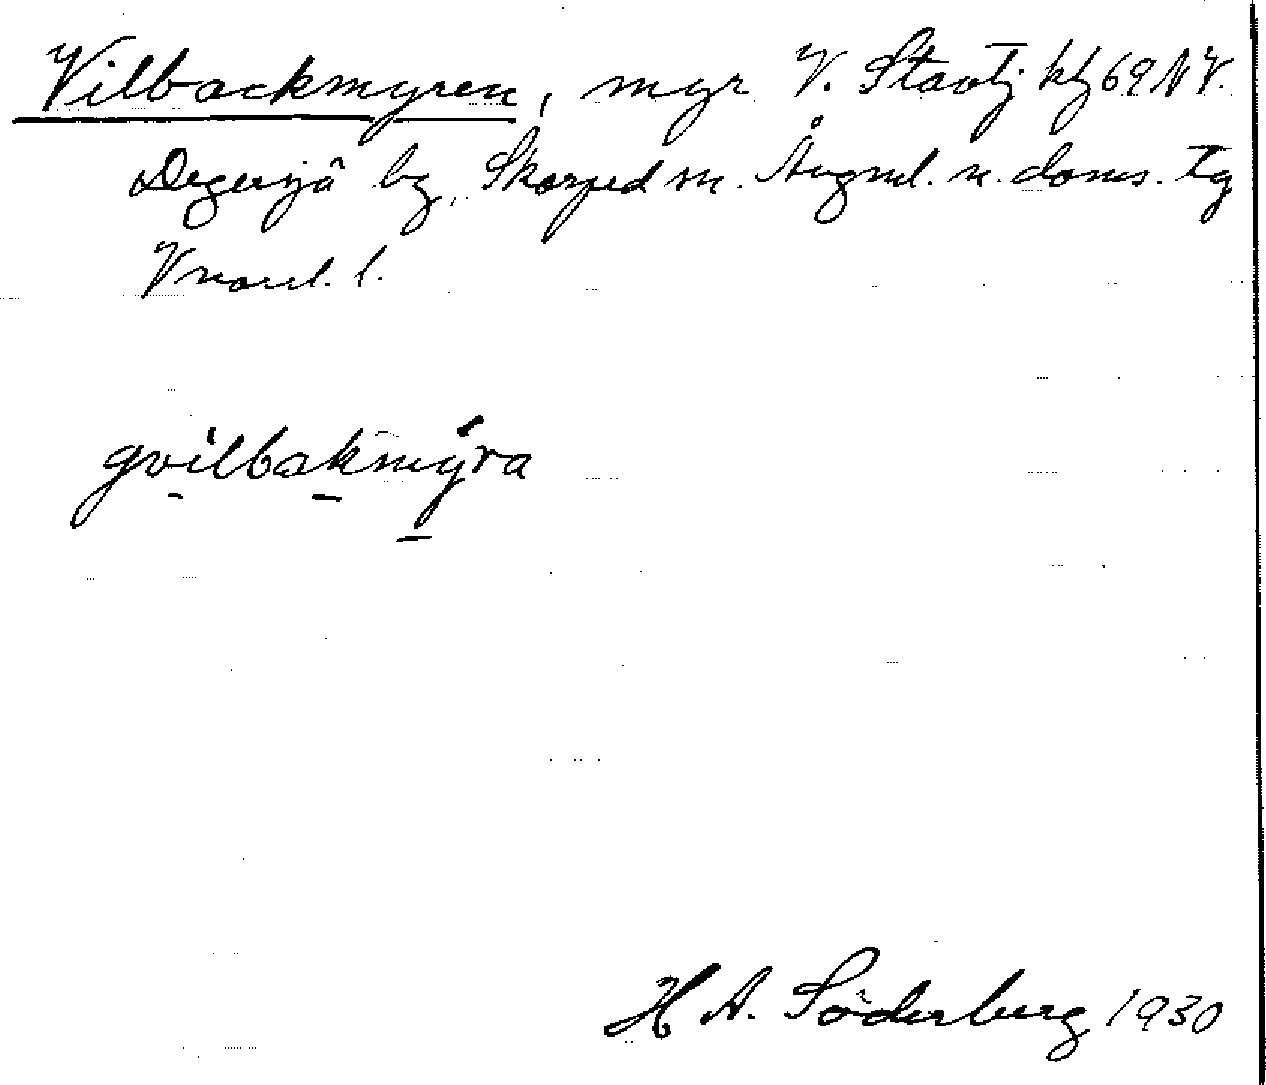 Vilbackmyren, myr V. Stavtj kbl 69 NV.
Degersjö by, Skorped sn. Ångml. n. doms. tg
Vnorrl. l.
gvilbakmyra
H A. Söderberg 1930